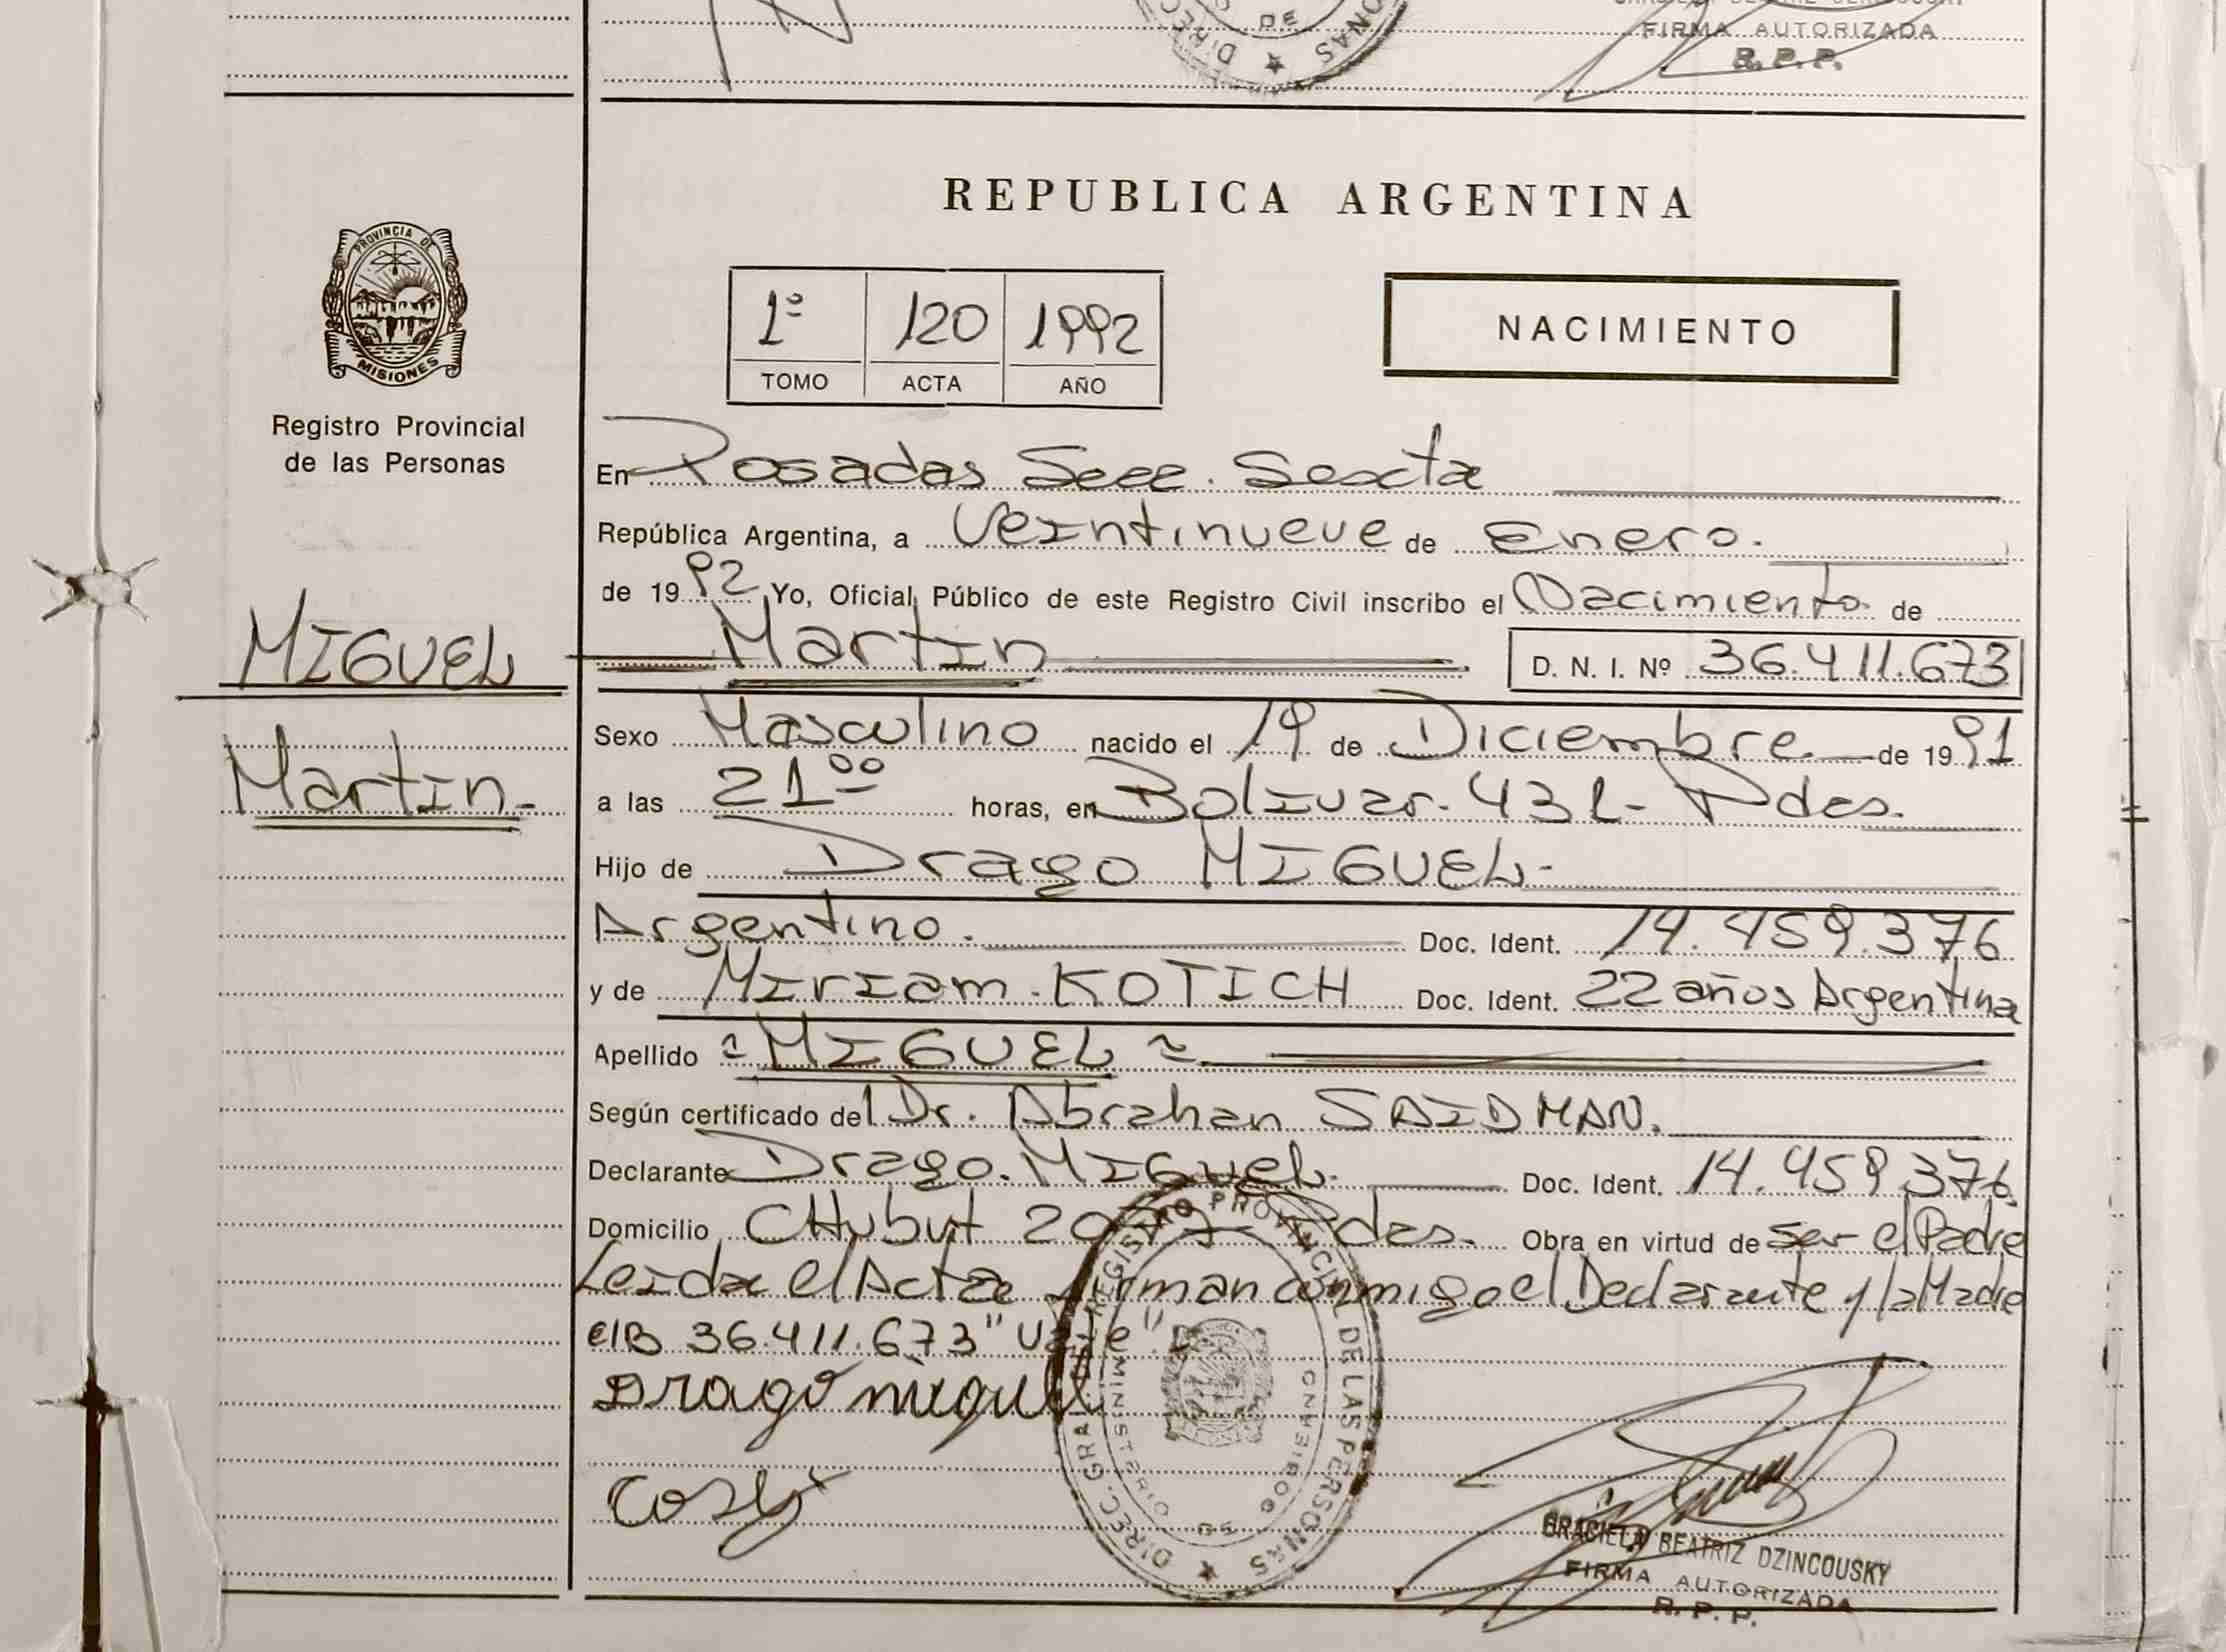 FIRMA AUTORIZADA
R. P. P.
DE
PROVINCIA DE
MISIONES
Registro Provincial
de las Personas
MIGUEL
Martin.-
REPUBLICA ARGENTINA
1º 120 1992
TOMO ACTA AÑO
NACIMIENTO
En Posadas Secc. Sexta
República Argentina, a Veintinueve de Enero.
de 1992 Yo, Oficial Público de este Registro Civil inscribo el Nacimiento de
Martin D. N. I. Nº 36.411.673
Sexo Masculino nacido el 19 de Diciembre de 1991
a las 21 00 horas, en Bolivar. 432- Pdas.
Hijo de Drago MIGUEL-
Argentino. Doc. Ident. 14.459.376
y de Miriam. KOTICH Doc. Ident. 22 años Argentina
Apellido = MIGUEL =
Según certificado del Dr. Abrahan SAIDMAN.
Declarante Drago. MIGUEL. Doc. Ident. 14.459.376
Domicilio CHubut Pdas. Obra en virtud de ser el Padre
Leida el Acta firman conmigo el Declarante y la Madre
36.411.673 "Vale".
Drago Miguel
DIREC. GRAL. REGISTRO PROVINCIAL DE LAS PERSONAS
MINISTERIO DE GOBIERNO
GRACIELA BEATRIZ DZINCOUSKY
FIRMA AUTORIZADA
R. P. P.